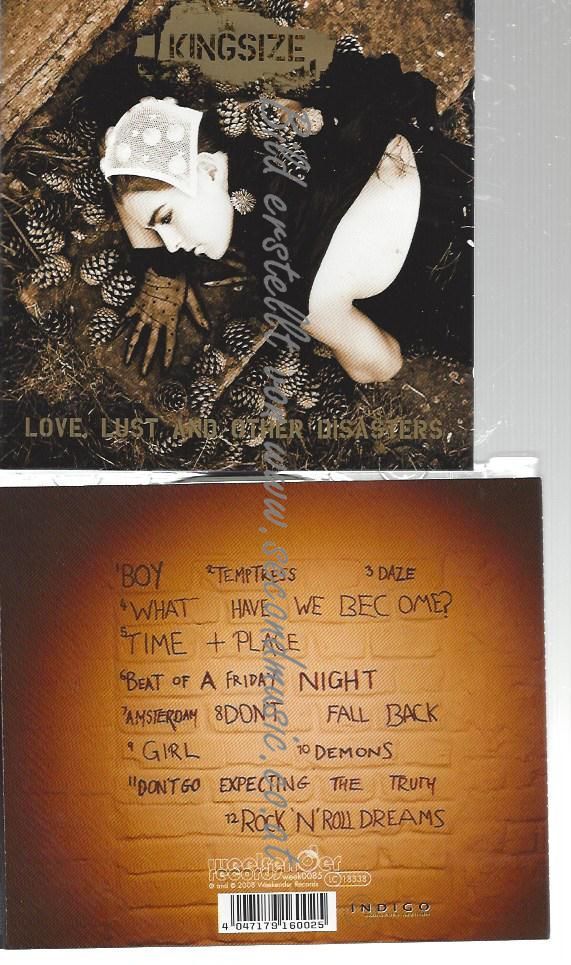 KINGSIZE
LOVE, LUST AND OTHER DISASTERS
Bild erstellt von www.secondmusic.co.at
1 BOY 2 TEMPTRESS 3 DAZE
4 WHAT HAVE WE BECOME?
5 TIME + PLACE
6 BEAT OF A FRIDAY NIGHT
7 AMSTERDAM 8 DON'T FALL BACK
9 GIRL 10 DEMONS
11 DON'T GO EXPECTING THE TRUTH
12 ROCK 'N' ROLL DREAMS
weekender
records week0085 LC 18338
℗ and © 2008 Weekender Records
4 047179 160025
INDIGO